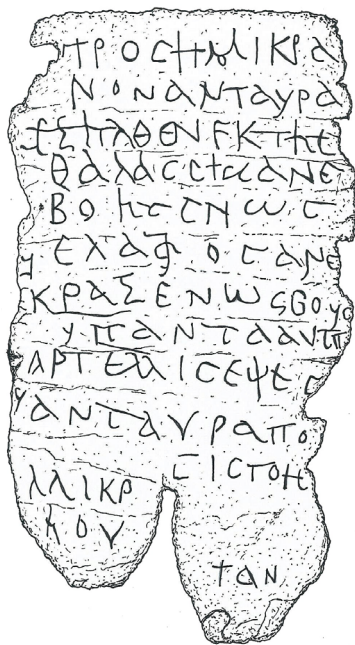 ΠΡΟСΗΜΙΚΡΑ
ΝΟΝΑΝΤΑΥΡΑ
ΕΞΗΛΘΕΝΕΚΤΗС
ΘΑΛΑССΗСΑΝΕ
ΒΟΗСΕΝωС
ΕΛΑΦΟСΑΝΕ
ΚΡΑΞΕΝωСΒΟΥС
ΥΠΑΝΤΑΑΥΤΗ
ΑΡΤΕΜΙСΕΦΕС
ΑΝΤΑΥΡΑΠΟ
ΙСΤΟΗ
ΜΙΚΡ
ΜΟΥ
ΤΑΝ